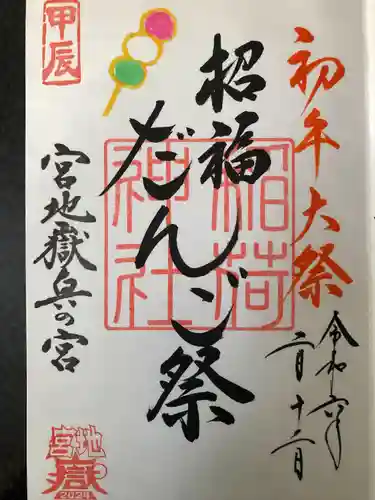 初午大祭
令和六年
二月十二日
招福
だんご祭
稲荷
神社
甲辰
宮地嶽兵の宮
宮地
嶽
2024